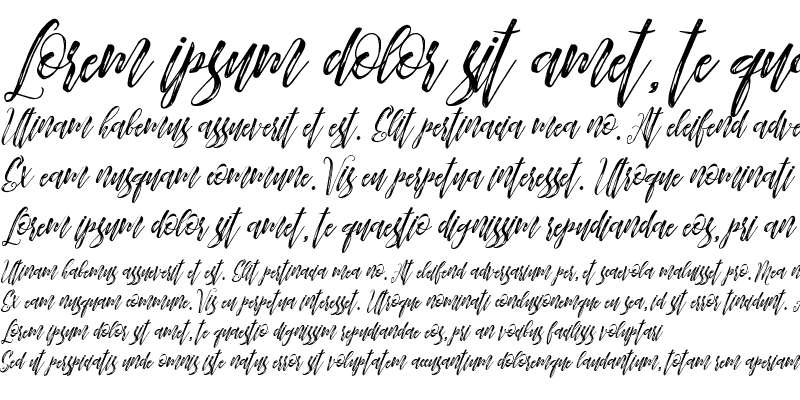 Lorem ipsum dolor sit amet, te qua
Utinam habemus assueverit et est. Elit pertinacia mea no. At eleifend adve
Ex eam nusquam commune. Vis eu perpetua interesset. Utroque nominati
Lorem ipsum dolor sit amet, te quaestio dignissim repudiandae eos, pri an
Utinam habemus assueverit et est. Elit pertinacia mea no. At eleifend adversarium per, et scaevola maluisset pro. Mea n
Ex eam nusquam commune. Vis eu perpetua interesset. Utroque nominati conclusionemque eu sea, id sit error tincidunt.
Lorem ipsum dolor sit amet, te quaestio dignissim repudiandae eos, pri an vocibus facilisis voluptari
Sed ut perspiciatis unde omnis iste natus error sit voluptatem accusantium doloremque laudantium, totam rem aperiam